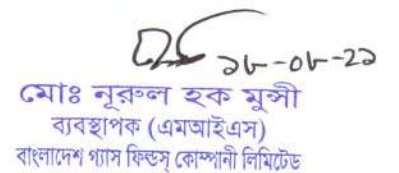 ১৮-০৮-২১
মোঃ নূরুল হক মুন্সী
ব্যবস্থাপক (এমআইএস)
বাংলাদেশ গ্যাস ফিল্ডস্ কোম্পানী লিমিটেড